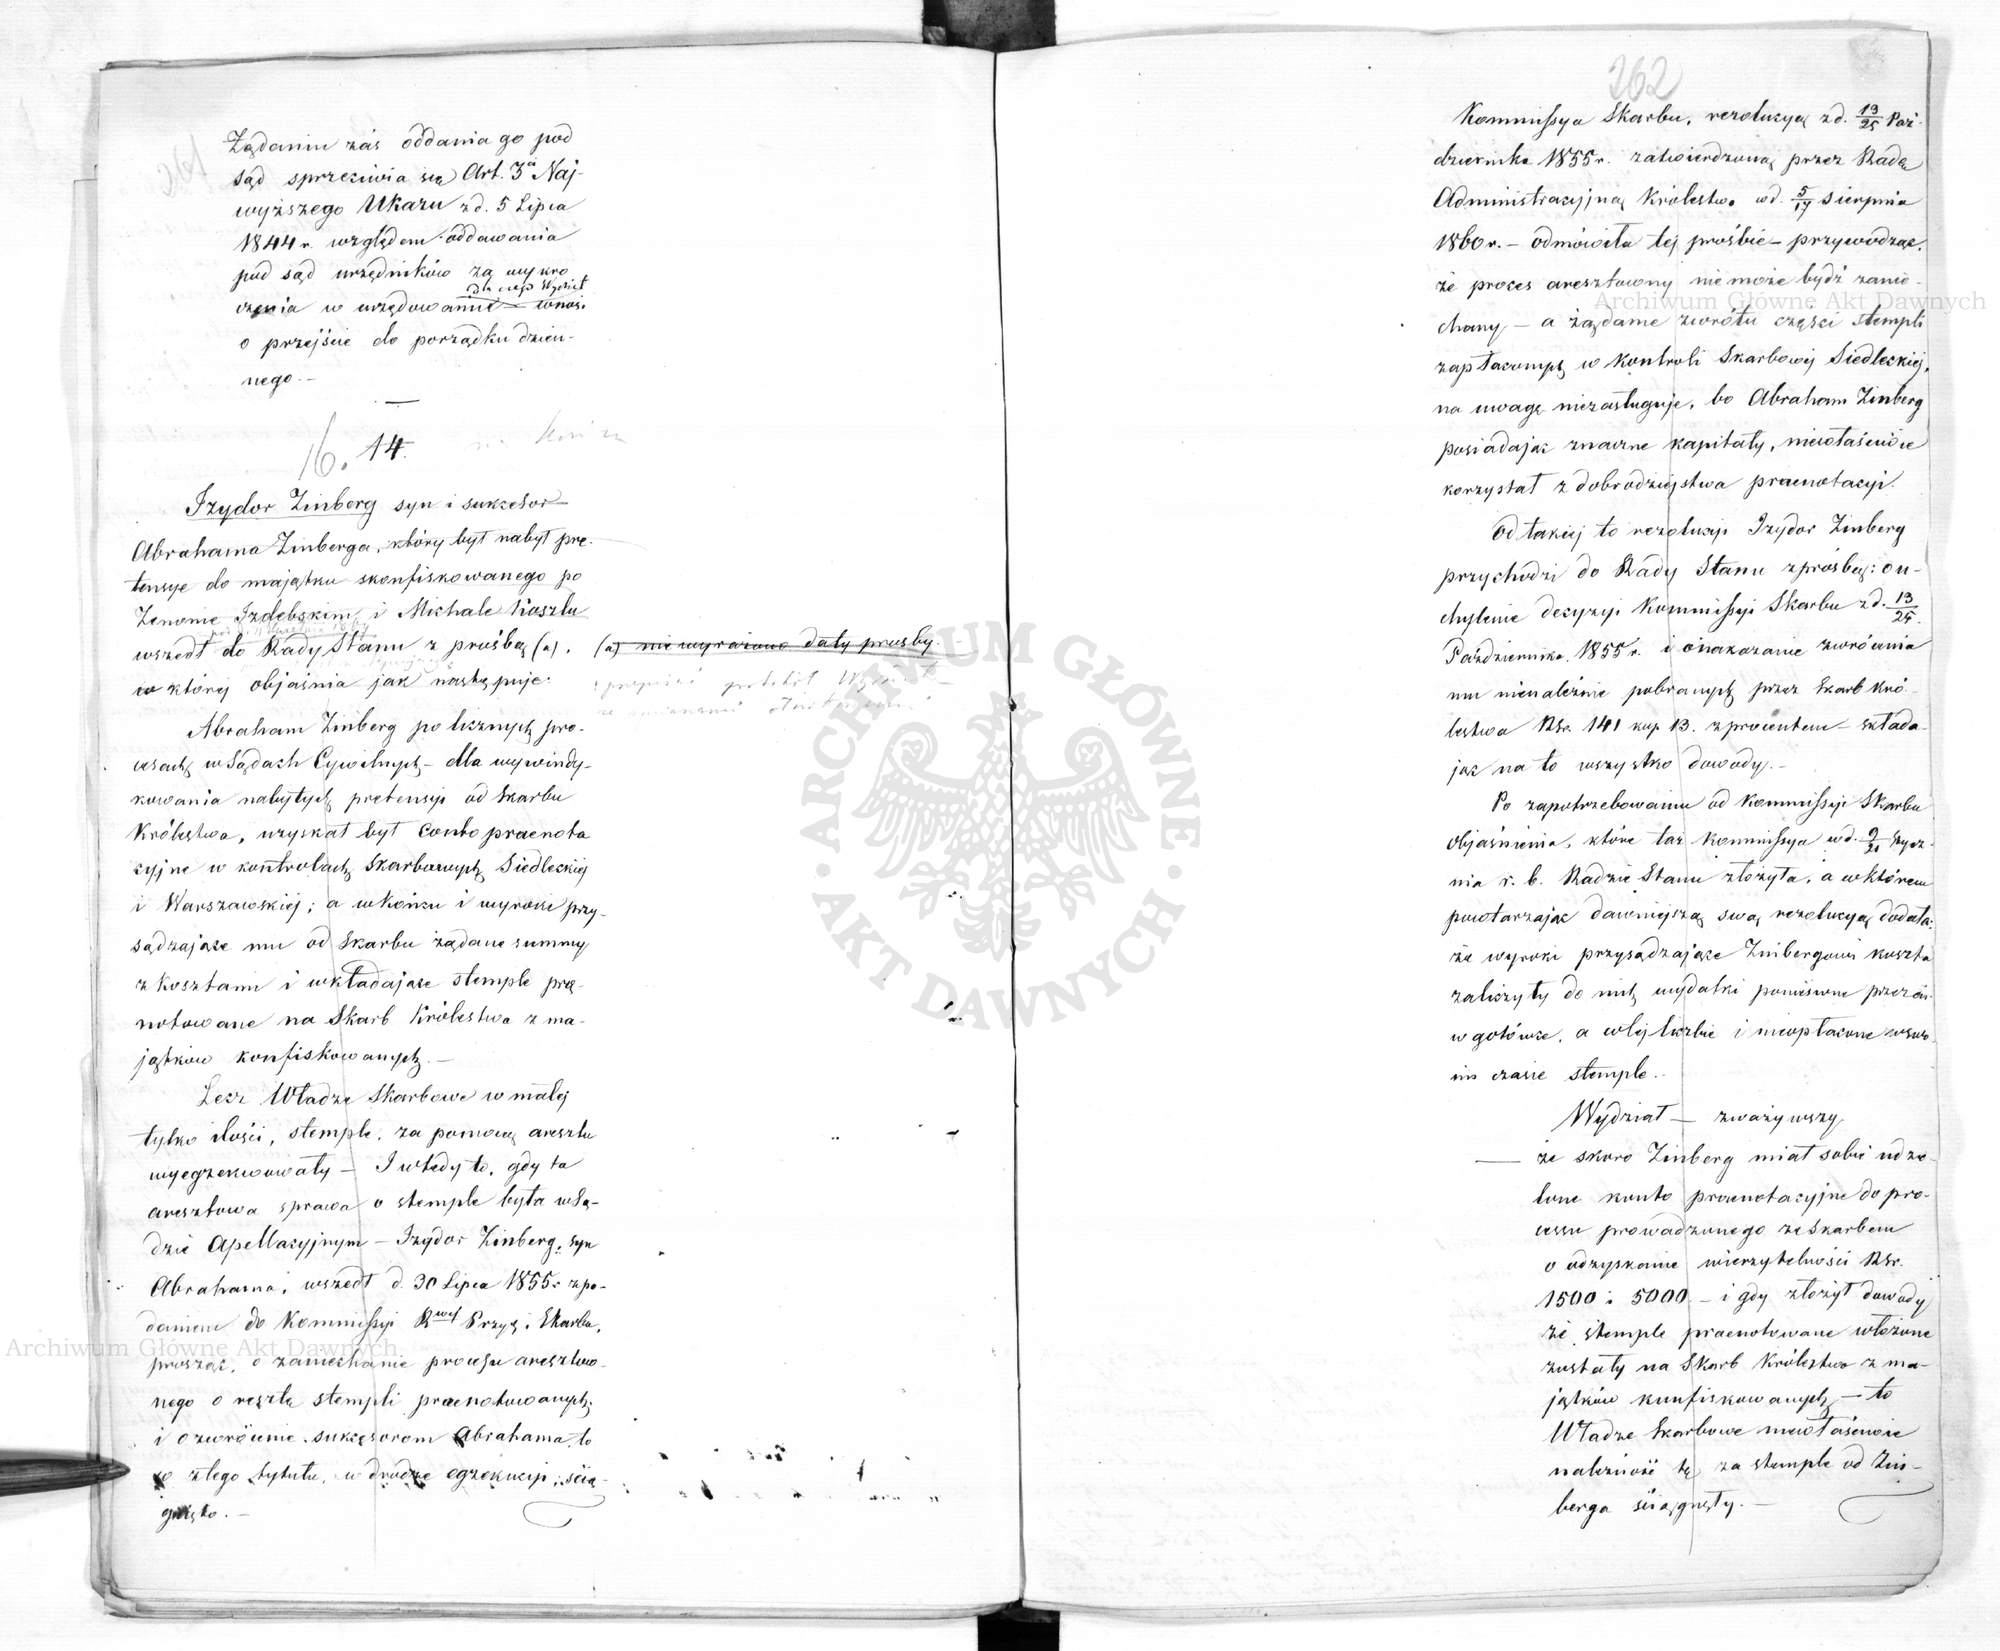 Żądaniu zaś oddania go pod
sąd sprzeciwia się Art. 3ci Naj-
wyższego Ukazu z d. 5 Lipca
1844 r. względem oddawania
pod sąd urzędników za wykro
dla czego Wydział
czenia w urzędowaniu – wnosi
o przejście do porządku dzien-
nego. –
16. 14.
Izydor Zinberg syn i sukcesor
Abrahama Zinberga, który był nabył pre-
tensye do majątku skonfiskowanego po
Zenonie Izdebskim i Michale Koszlu
wszedł do Rady Stanu z prośbą (a).
(a) nie wyrażono daty prośby.
w której objaśnia jak następuje:
Abraham Zinberg po licznych pro-
cesach w Sądach Cywilnych – dla wywindy-
kowania nabytych pretensyi od Skarbu
Królestwa, uzyskał był conto praenota
cyjne w kontrolach Skarbowych Siedleckiej
i Warszawskiej; a w końcu i wyroki przy-
sądzające mu od Skarbu żądane summy
z kosztami i wkładające stemple pre-
notowane na Skarb Królestwa z ma-
jątków konfiskowanych. –
Lecz Władze Skarbowe w małej
tylko ilości, stemple, za pomocą aresztu
wyegzekwowały – I wtedy to, gdy ta
aresztowa sprawa o stemple była w Są-
dzie Apellacyjnym – Izydor Zinberg, syn
Abrahama, wszedł d. 30 Lipca 1855 r. z po-
daniem do Kommissyi Rwej Przyj. i Skarbu,
prosząc, o zaniechanie procesu areszto-
nego o resztę stempli praenotowanych
i o zwrócenie sukcesorom Abrahama, to
co z tego tytułu, w drodze egzekucyi, ścią-
gnięto. –
262
Kommissya Skarbu, rezolucyą z d. 13/25 Paź-
dziernika 1855 r. zatwierdzoną przez Radę
Administracyjną Królestwa w d. 5/17 Sierpnia
1860 r. – odmówiła tej prośbie – przywodząc,
że proces aresztowny nie może bydź zanie-
chany – a żądanie zwrotu części stempli
zapłaconych w Kontroli Skarbowej Siedleckiej,
na uwagę niezasługuje, bo Abraham Zinberg
posiadając znaczne kapitały, niewłaściwie
korzystał z dobrodziejstwa praenotacyi.
Od takiej to rezolucyi Izydor Zinberg
przychodzi do Rady Stanu z prośbą: o u-
chylenie decyzyi Kommissyi Skarbu z d. 13/25
Października 1855 r. i o nakazanie zwrócenia
mu nienależnie pobranych przez Skarb Kró-
lestwa RSr. 141 kop. 13. z procentem – składa-
jąc na to wszystko dowody. –
Po zapotrzebowaniu od Kommissyi Skarbu
objaśnienia, które taż Kommissya w d. 9/21 Stycz-
nia r. b. Radzie Stanu złożyła, a w którem
powtarzając dawniejszą swą rezolucyą dodała:
że wyroki przysądzające Zinbergowi koszta
zaliczyły do nich wydatki poniesione przezeń
w gotówce, a w tej liczbie i nieopłacone w swo-
im czasie stemple. –
Wydział – zważywszy
– że skoro Zinberg miał sobie udzie-
lone konto praenotacyjne do pro-
cessu prowadzonego ze Skarbem
o odzyskanie wierzytelności RSr.
1500 i 5000 – i gdy złożył dowody
że stemple praenotowane włożone
zostały na Skarb Królestwa z ma-
jątków konfiskowanych – to
Władze Skarbowe niewłaściwie
należność tę za stemple od Zin-
berga ściągnęły. –
Archiwum Główne Akt Dawnych
Archiwum Główne Akt Dawnych
ARCHIWUM GŁÓWNE
AKT DAWNYCH